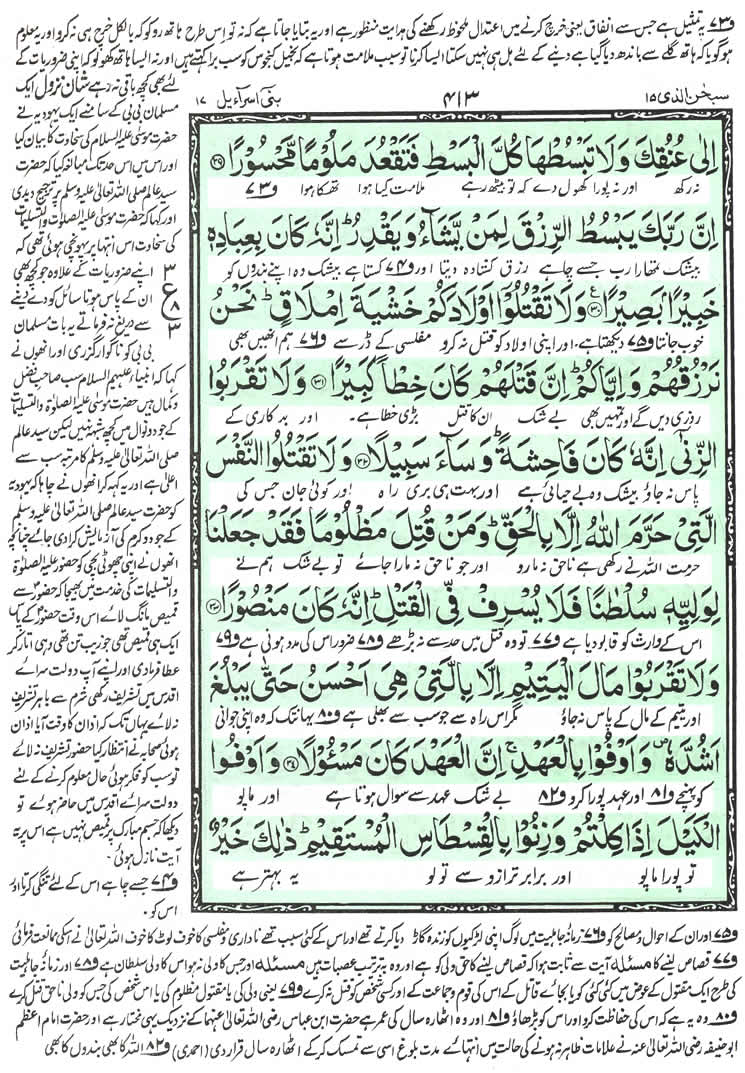 و۷۳ یہ تمثیل ہے جس سے انفاق یعنی خرچ کرنے میں اعتدال ملحوظ رکھنے کی ہدایت منظور ہے اور یہ بتایا جاتا ہے کہ نہ تو اس طرح ہاتھ روکو کہ بالکل خرچ ہی نہ کرو اور یہ معلوم
ہو گویا کہ ہاتھ گلے سے باندھ دیا گیا ہے دینے کے لئے ہل ہی نہیں سکتا ایسا کرنا تو سبب ملامت ہوتا ہے کہ بخیل کنجوس کو سب برا کہتے ہیں اور نہ ایسا ہاتھ کھولو کہ اپنی ضروریات کے
لئے بھی کچھ باقی نہ رہے شان نزول ایک
مسلمان بی بی کے سامنے ایک یہودیہ نے
حضرت موسٰی علیہ السلام کی سخاوت کا بیان کیا
اور اس میں اس حد تک مبالغہ کیا کہ حضرت
سید عالم صلی اللہ تعالٰی علیہ وسلم پر ترجیح دیدی
اور کہا کہ حضرت موسٰی علیہ الصلوٰۃ والتسلیمات
کی سخاوت اس انتہا پر پہونچی ہوئی تھی کہ
اپنے ضروریات کے علاوہ جو کچھ بھی
ان کے پاس ہوتا سائل کو دے دینے
سے دریغ نہ فرماتے یہ بات مسلمان
بی بی کو ناگوار گزری اور انھوں نے
کہا کہ انبیاء علیہم السلام سب صاحب فضل
و کمال ہیں حضرت موسٰی علیہ الصلوٰۃ والتسلیمات
کے جود و نوال میں کچھ شبہ نہیں لیکن سید عالم
صلی اللہ تعالٰی علیہ وسلم کا مرتبہ سب سے
اعلٰی ہے اور یہ کہہ کر انھوں نے چاہا کہ یہودیہ
کو حضرت سید عالم صلی اللہ تعالٰی علیہ وسلم
کے جود و کرم کی آزمایش کرا دی جائے چنانچہ
انھوں نے اپنی چھوٹی بچی کو حضور علیہ الصلوٰۃ
والتسلیمات کی خدمت میں بھیجا کہ حضور سے
قمیص مانگ لائے اس وقت حضور کے پاس
ایک ہی قمیص تھی جو زیب تن تھی وہی اتار کر
عطا فرما دی اور اپنے آپ دولت سرائے
اقدس میں تشریف رکھی شرم سے باہر تشریف
نہ لائے یہاں تک کہ اذان کا وقت آیا اذان
ہوئی صحابہ نے انتظار کیا حضور تشریف نہ لائے
تو سب کو فکر ہوئی حال معلوم کرنے کے لئے
دولت سرائے اقدس میں حاضر ہوئے تو
دیکھا کہ جسم مبارک پر قمیص نہیں ہے اس پر یہ
آیت نازل ہوئی۔
و۷۴ جسے چاہے اس کے لئے تنگی کرتا اور
اس کو۔
۳
ع
۸
۳
سبحٰن الذی ۱۵
۴۱۳
بنی اسراءیل ۱۷
اِلٰى عُنُقِكَ وَلَا تَبْسُطْهَا كُلَّ الْبَسْطِ فَتَقْعُدَ مَلُوْمًا مَّحْسُوْرًا ۝۲۹
نہ رکھ اور نہ پورا کھول دے کہ تو بیٹھ رہے ملامت کیا ہوا تھکا ہوا و۷۳
اِنَّ رَبَّكَ يَبْسُطُ الرِّزْقَ لِمَنْ يَّشَآءُ وَيَقْدِرُ ؕ اِنَّهٗ كَانَ بِعِبَادِهٖ
بیشک تمھارا رب جسے چاہے رزق کشادہ دیتا اور و۷۴ کستا ہے بیشک وہ اپنے بندوں کو
خَبِيْرًۢا بَصِيْرًا ۝۳۰ وَلَا تَقْتُلُوْۤا اَوْلَادَكُمْ خَشْيَةَ اِمْلَاقٍ ؕ نَحْنُ
خوب جانتا و۷۵ دیکھتا ہے، اور اپنی اولاد کو قتل نہ کرو مفلسی کے ڈر سے و۷۶ ہم انھیں بھی
نَرْزُقُهُمْ وَاِيَّاكُمْ ؕ اِنَّ قَتْلَهُمْ كَانَ خِطْاً كَبِيْرًا ۝۳۱ وَلَا تَقْرَبُوا
روزی دیں گے اور تمہیں بھی بے شک ان کا قتل بڑی خطا ہے۔ اور بدکاری کے
الزِّنٰۤى اِنَّهٗ كَانَ فَاحِشَةً ؕ وَسَآءَ سَبِيْلًا ۝۳۲ وَلَا تَقْتُلُوا النَّفْسَ
پاس نہ جاؤ بیشک وہ بے حیائی ہے اور بہت ہی بری راہ اور کوئی جان جس کی
الَّتِيْ حَرَّمَ اللّٰهُ اِلَّا بِالْحَقِّ ؕ وَمَنْ قُتِلَ مَظْلُوْمًا فَقَدْ جَعَلْنَا
حرمت اللہ نے رکھی ہے ناحق نہ مارو اور جو ناحق نہ مارا جائے تو بے شک ہم نے
لِوَلِيِّهٖ سُلْطٰنًا فَلَا يُسْرِفْ فِّي الْقَتْلِ ؕ اِنَّهٗ كَانَ مَنْصُوْرًا ۝۳۳
اس کے وارث کو قابو دیا ہے و۷۷ تو وہ قتل میں حد سے نہ بڑھے و۷۸ ضرور اس کی مدد ہونی ہے و۷۹
وَلَا تَقْرَبُوْا مَالَ الْيَتِيْمِ اِلَّا بِالَّتِيْ هِيَ اَحْسَنُ حَتّٰى يَبْلُغَ
اور یتیم کے مال کے پاس نہ جاؤ مگر اس راہ سے جو سب سے بھلی ہے و۸۰ یہانتک کہ وہ اپنی جوانی
اَشُدَّهٗ ۪ وَاَوْفُوْا بِالْعَهْدِ ۚ اِنَّ الْعَهْدَ كَانَ مَسْئُوْلًا ۝۳۴ وَاَوْفُوا
کو پہنچے و۸۱ اور عہد پورا کرو و۸۲ بے شک عہد سے سوال ہوتا ہے اور ماپو
الْكَيْلَ اِذَا كِلْتُمْ وَزِنُوْا بِالْقِسْطَاسِ الْمُسْتَقِيْمِ ؕ ذٰلِكَ خَيْرٌ
تو پورا ماپو اور برابر ترازو سے تولو یہ بہتر ہے
و۷۵ اور ان کے احوال و مصالح کو و۷۶ زمانہ جاہلیت میں لوگ اپنی لڑکیوں کو زندہ گاڑ دیا کرتے تھے اور اس کے کئی سبب تھے ناداری و مفلسی کا خوف لوٹ کا خوف اللہ تعالٰی نے اسکی ممانعت فرمائی
و۷۷ قصاص لینے کا مسئلہ آیت سے ثابت ہوا کہ قصاص لینے کا حق ولی کو ہے اور وہ بہ ترتیب عصبات ہیں مسئلہ اور جس کا ولی نہ ہو اس کا ولی سلطان ہے و۷۸ اور زمانہ جاہلیت
کی طرح ایک مقتول کے عوض میں کئی کئی کو یا بجائے قاتل کے اس کی قوم و جماعت کے اور کسی شخص کو قتل نہ کرے و۷۹ یعنی ولی کی یا مقتول مظلوم کی یا اس شخص کی جس کو ولی ناحق قتل کرے
و۸۰ وہ یہ ہے کہ اس کی حفاظت کرو اور اس کو بڑھاؤ و۸۱ اور وہ اٹھارہ سال کی عمر ہے حضرت ابن عباس رضی اللہ تعالٰی عنہما کے نزدیک یہی مختار ہے اور حضرت امام اعظم
ابو حنیفہ رضی اللہ تعالٰی عنہ نے علامات ظاہر نہ ہونے کی حالت میں انتہائے مدت بلوغ اسی سے تمسک کر کے اٹھارہ سال قرار دی (احمدی) و۸۲ اللہ کا بھی بندوں کا بھی